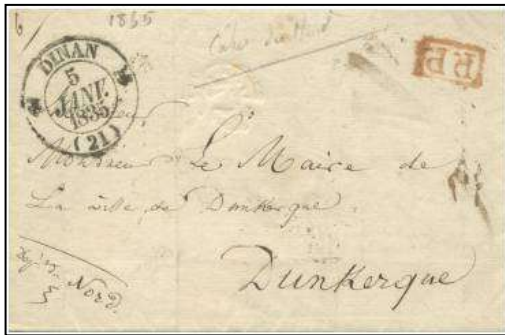 1835
DINAN
5
JANV.
1835
(21)
P.P.
Monsieur
Monsieur Le Maire de
La ville de Dunkerque
Dunkerque
Nord.